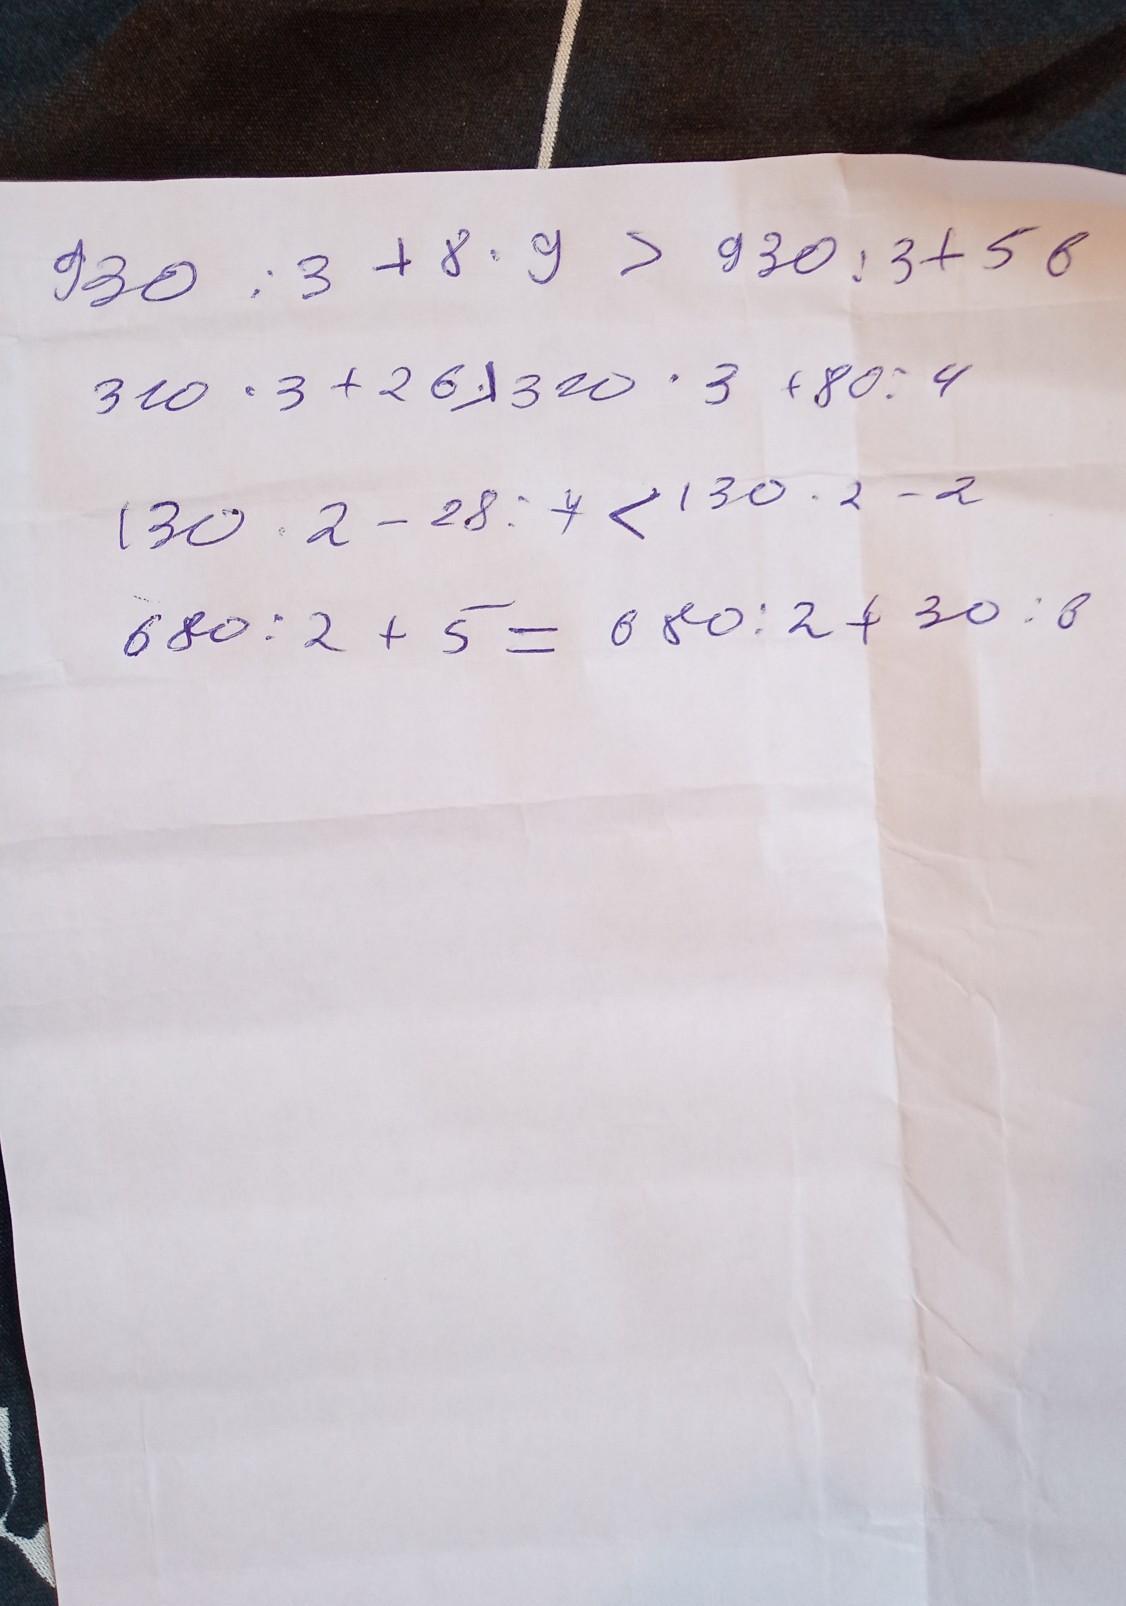 930 : 3 + 8 · 9 > 930 : 3 + 56
310 · 3 + 26 > 310 · 3 + 80 : 4
130 · 2 - 28 : 7 < 130 · 2 - 2
680 : 2 + 5 = 680 : 2 + 30 : 6